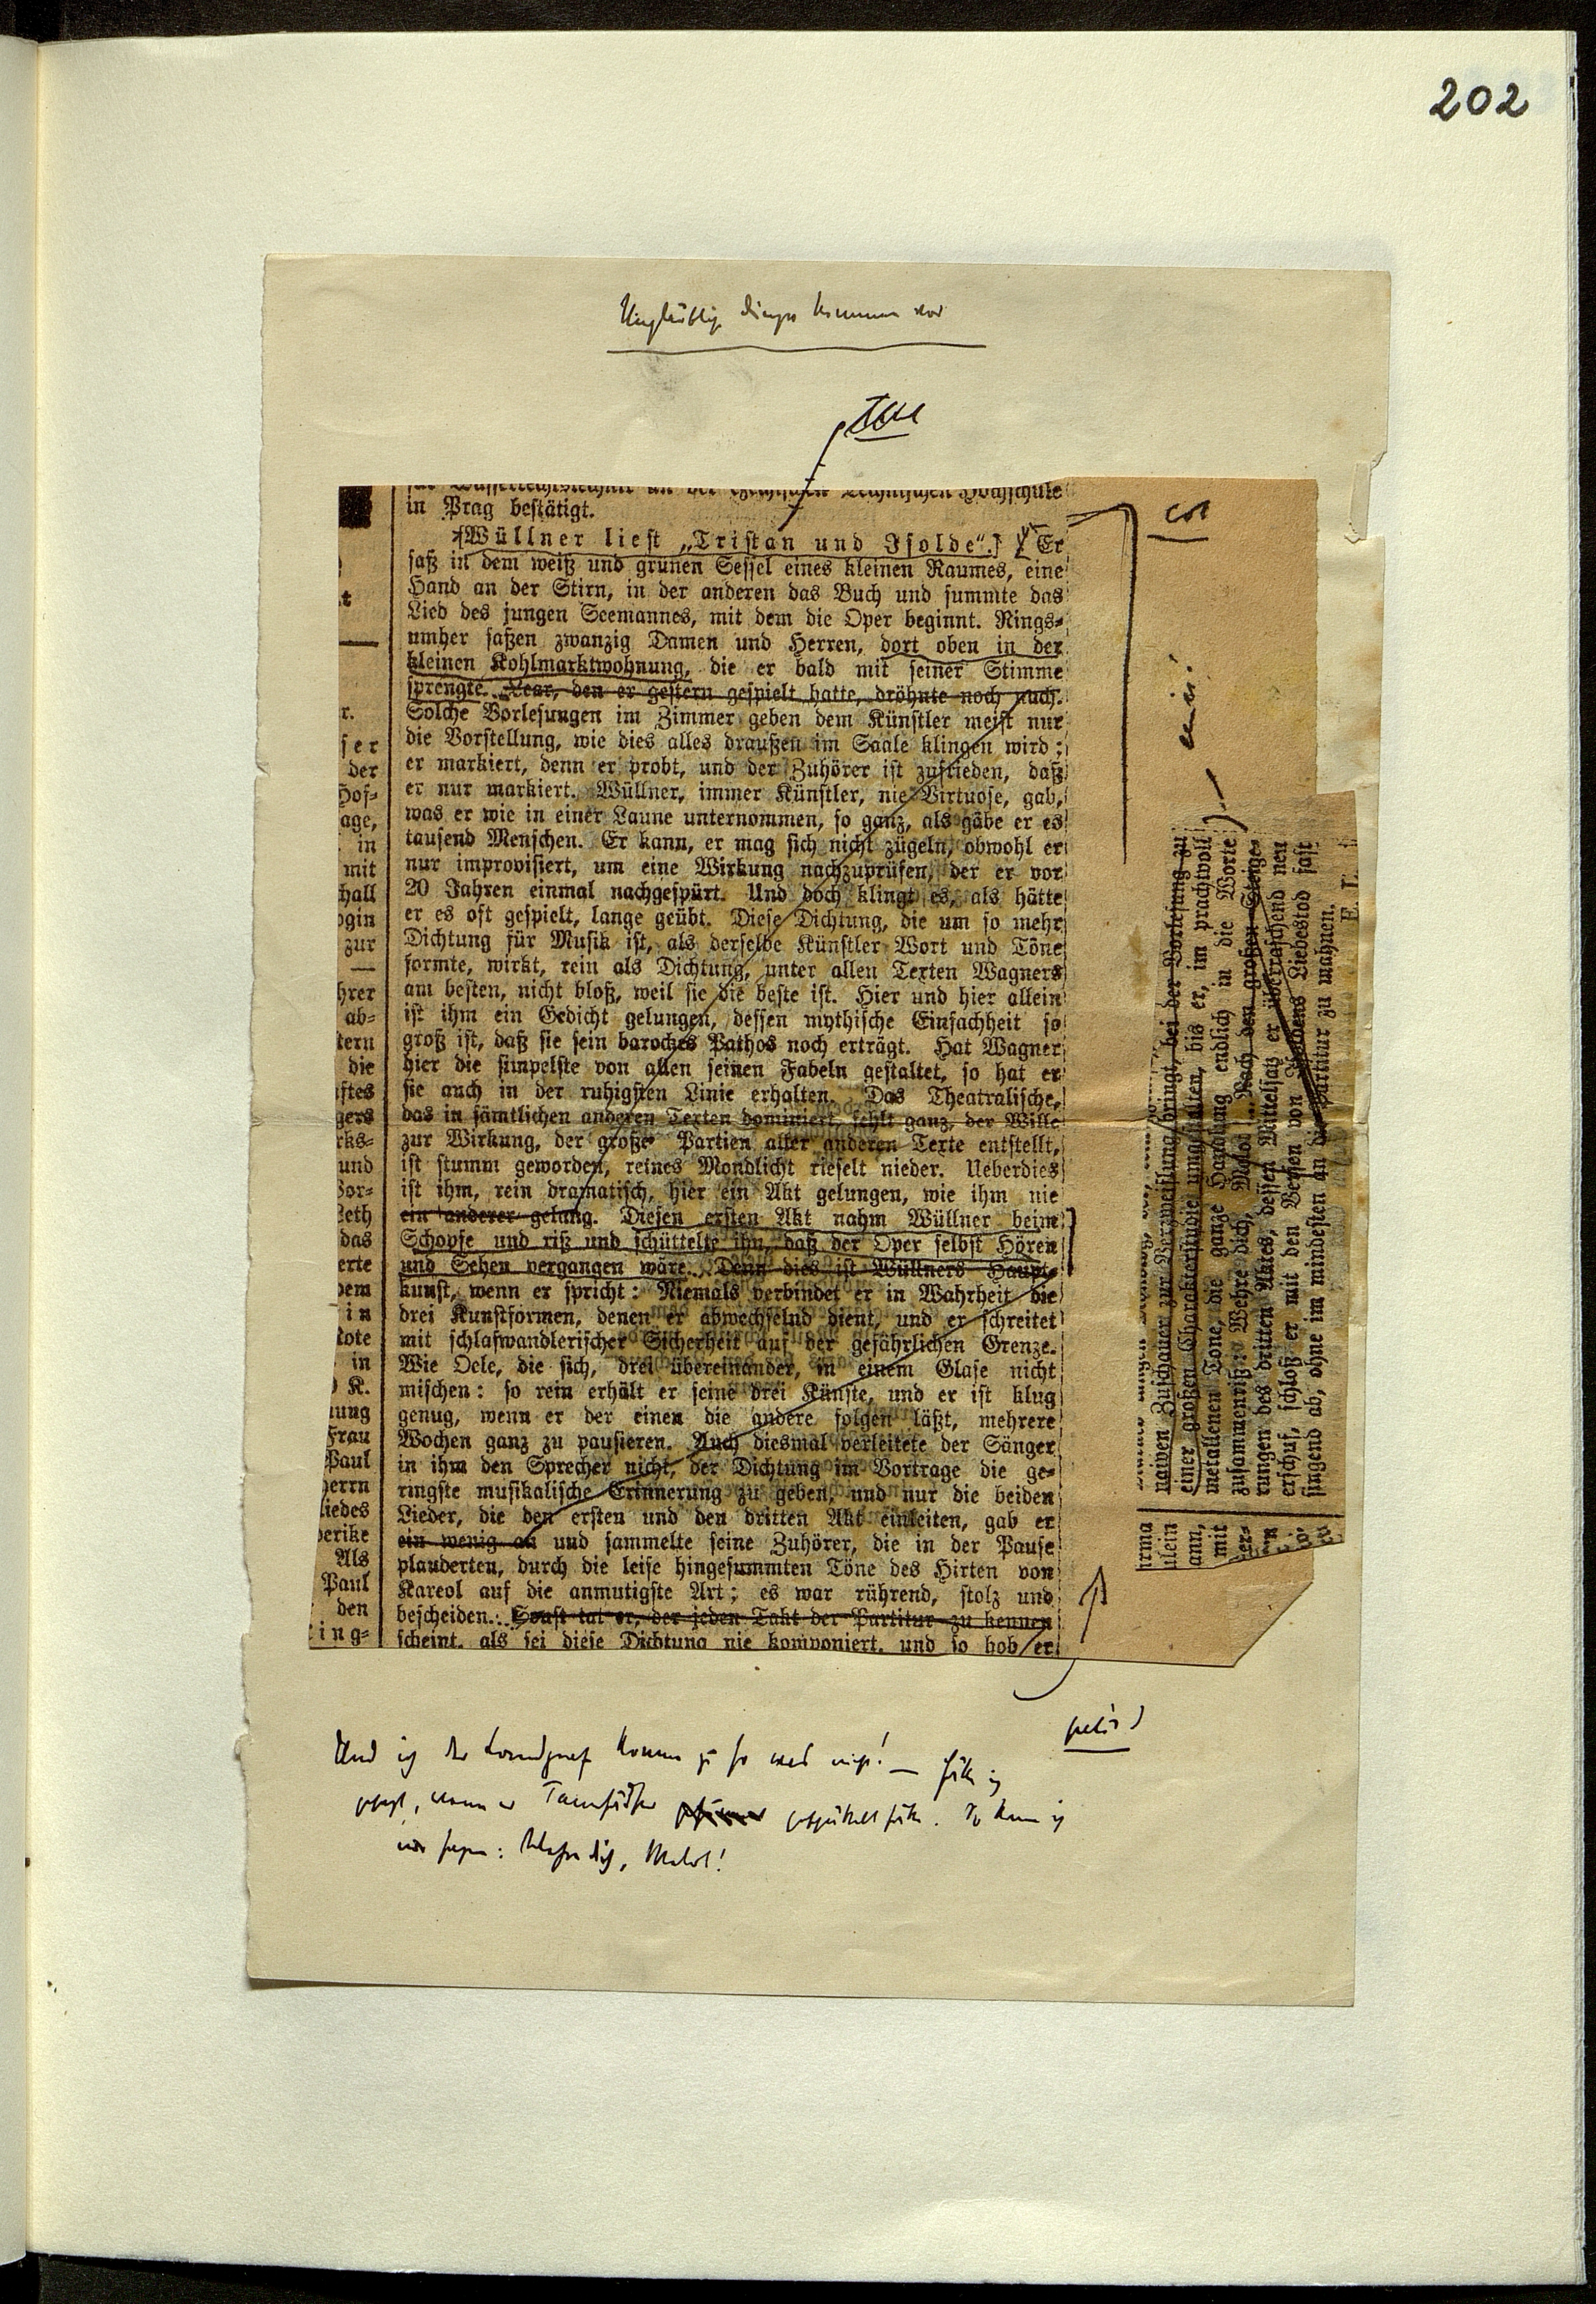 202
in Prag bestätigt.
Wüllner liest „Tristan und Isolde“.] Er
saß in dem weiß und grünen Sessel eines kleinen Raumes, eine
Hand an der Stirn, in der anderen das Buch und summte das
Lied des jungen Seemannes, mit dem die Oper beginnt. Rings-
umher saßen zwanzig Damen und Herren, dort oben in der
kleinen Kohlmarktwohnung, die er bald mit seiner Stimme
sprengte. Lear, den er gestern gespielt hatte, dröhnte noch nach.
Solche Vorlesungen im Zimmer geben dem Künstler meist nur
die Vorstellung, wie dies alles draußen im Saale klingen wird:
er markiert, denn er probt, und der Zuhörer ist zufrieden, daß
er nur markiert. Wüllner, immer Künstler, nie Virtuose, gab,
was er wie in einer Laune unternommen, so ganz, als gäbe er es
tausend Menschen. Er kann, er mag sich nicht zügeln, obwohl er
nur improvisiert, um eine Wirkung nachzuprüfen, der er vor
20 Jahren einmal nachgespürt. Und doch klingt es, als hätte
er es oft gespielt, lange geübt. Diese Dichtung, die um so mehr
Dichtung für Musik ist, als derselbe Künstler Wort und Töne
formte, wirkt, rein als Dichtung, unter allen Texten Wagners
am besten, nicht bloß, weil sie die beste ist. Hier und hier allein
ist ihm ein Gedicht gelungen, dessen mythische Einfachheit so
groß ist, daß sie sein barockes Pathos noch erträgt. Hat Wagner
hier die simpelste von allen seinen Fabeln gestaltet, so hat er
sie auch in der ruhigsten Linie erhalten. Das Theatralische,
das in sämtlichen anderen Texten dominiert, fehlt ganz, der Wille
zur Wirkung, der große Partien aller anderen Texte entstellt,
ist stumm geworden, reines Mondlicht rieselt nieder. Ueberdies
ist ihm, rein dramatisch, hier ein Akt gelungen, wie ihm nie
ein anderer gelang. Diesen ersten Akt nahm Wüllner beim
Schopfe und riß und schüttelte ihn, daß der Oper selbst Hören
und Sehen vergangen wäre. Denn dies ist Wüllners Haupt-
kunst, wenn er spricht: Niemals verbindet er in Wahrheit die
drei Kunstformen, denen er abwechselnd dient, und er schreitet
mit schlafwandlerischer Sicherheit auf der gefährlichen Grenze.
Wie Oele, die sich, drei übereinander, in einem Glase nicht
mischen: so rein erhält er seine drei Künste, und er ist klug
genug, wenn er der einen die andere folgen läßt, mehrere
Wochen ganz zu pausieren. Auch diesmal verleitete der Sänger
in ihm den Sprecher nicht, der Dichtung im Vortrage die ge-
ringste musikalische Erinnerung zu geben, und nur die beiden
Lieder, die den ersten und den dritten Akt einleiten, gab er
ein wenig an und sammelte seine Zuhörer, die in der Pause
plauderten, durch die leise hingesummten Töne des Hirten von
Kareol auf die anmutigste Art; es war rührend, stolz und
bescheiden. Sonst tat er, der jeden Takt der Partitur zu kennen
scheint, als sei diese Dichtung nie komponiert, und so hob er
naiven Zuschauer zur Verzweiflung bringt, bei der Vorlesung zu
einer großen Charakterstudie umgestalten, bis er, im prachtvoll
metallenen Tone, die ganze Handlung endlich in die Worte
zusammenriß: Wehre dich, Melot! Nach den großen Steige-
rungen des dritten Aktes, dessen Mittelsatz er überraschend neu
erschuf, schloß er mit den Versen von Isoldens Liebestod fast
singend ab, ohne im mindesten an die Partitur zu mahnen.
E. L.
r.
ser
der
Hof-
age,
in
mit
hall
ogin
zur
hrer
ab-
tern
die
ftes
gers
rks-
und
Vor-
Leth
das
erte
dem
in
tote
in
K.
nung
Frau
Paul
Herrn
liedes
Als
Paul
den
ing-
irma
ulein
ann,
mit
Und ich der Landgraf komm zu so was nicht! — hätte ich
gesagt, wenn er Tannhäuser geschüttelt hätte. So kann ich
nur sagen: Wehre dich, Melot!